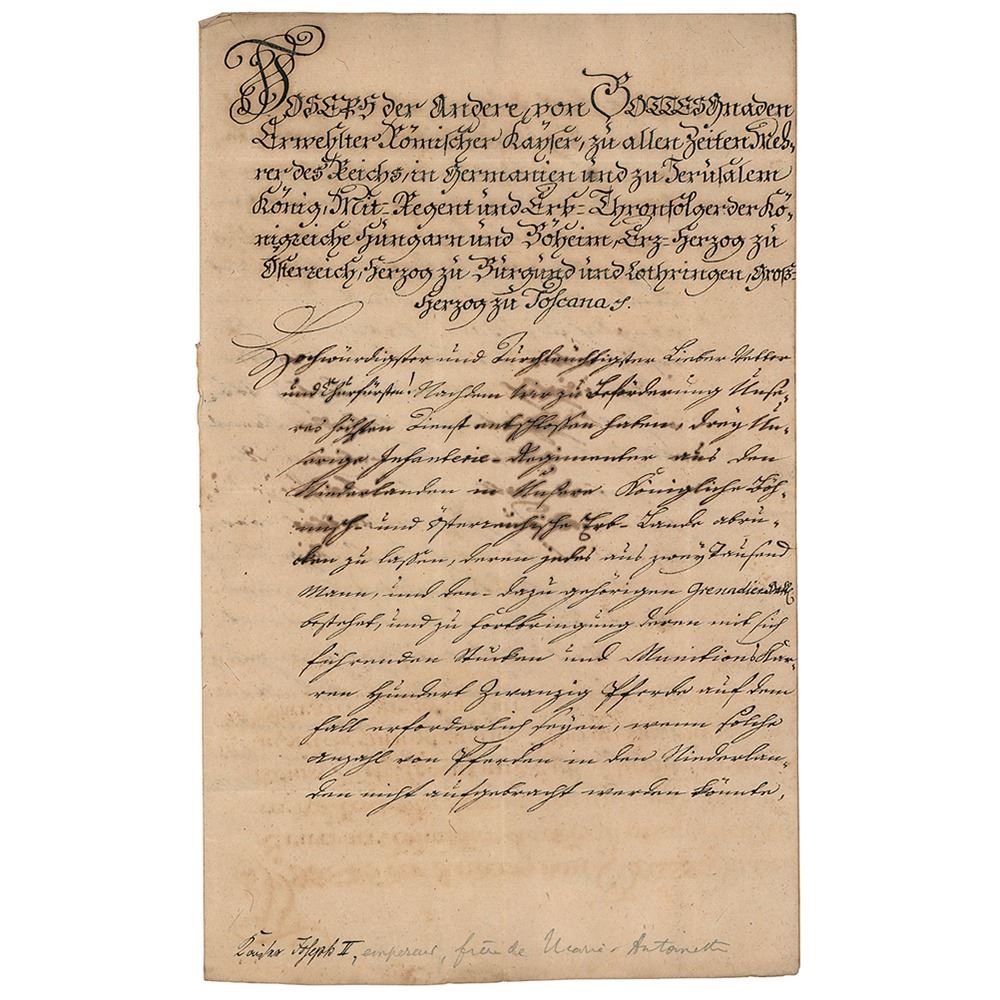 JOSEPH der Andere, von GOTTES Gnaden
Erwehlter Römischer Kayser, zu allen Zeiten Meh-
rer des Reichs, in Germanien und zu Jerusalem
König, Mit-Regent und Erb-Thronfolger der Kö-
nigreiche Hungarn und Böheim, Erz-Herzog zu
Österreich, Herzog zu Burgund und Lothringen, Groß-
Herzog zu Toscana
Hochwürdigster und Durchleuchtigster Lieber Vetter
und Churfürst! Nachdem wir zu Beförderung Unse-
res höchsten Dienst entschlossen haben, drey Un-
serige Infanterie-Regimenter aus den
Niederlanden in Unsere Königliche Böh-
misch- und Österreichische Erb-Lande abru-
cken zu lassen, deren jedes aus zwey Tausend
Mann, und den dazu gehörigen Grenadiers
bestehet, und zu Fortbringung deren mit sich
führenden Stucken und Munitions Kar-
ren Hundert Zwanzig Pferde auf dem
fall erforderlich seyen, wenn solche
Anzahl von Pferden in den Niederlan-
den nicht aufgebracht werden könnte,
Kaiser Joseph II, empereur, frère de Marie-Antoinette